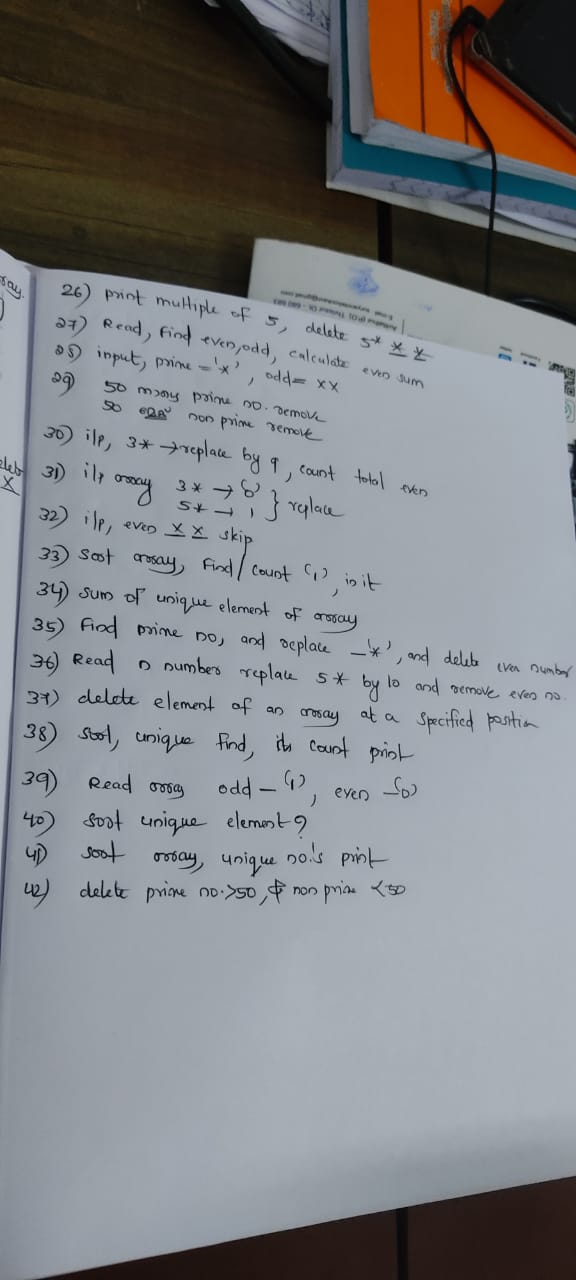 26) print multiple of 5, delete 5* X X
27) Read, find even,odd, calculate even sum
28) input, prime = '*', odd = xx
29) 50 prime no. remove
50 non prime remove
30) i/p, 3* → replace by 9, count total even
31) i/p array 3* → '0' } replace
5* → 1
32) i/p, even X X skip
33) sort array, find/count (1), in it
34) sum of unique element of array
35) find prime no, and replace – '*', and delete even number
36) Read n numbers replace 5* by 10 and remove even no.
37) delete element of an array at a specified position
38) sort, unique find, its count print
39) Read array odd – (1), even – (0)
40) sort unique element?
41) sort array, unique no.'s print
42) delete prime no. >50, & non prime <50